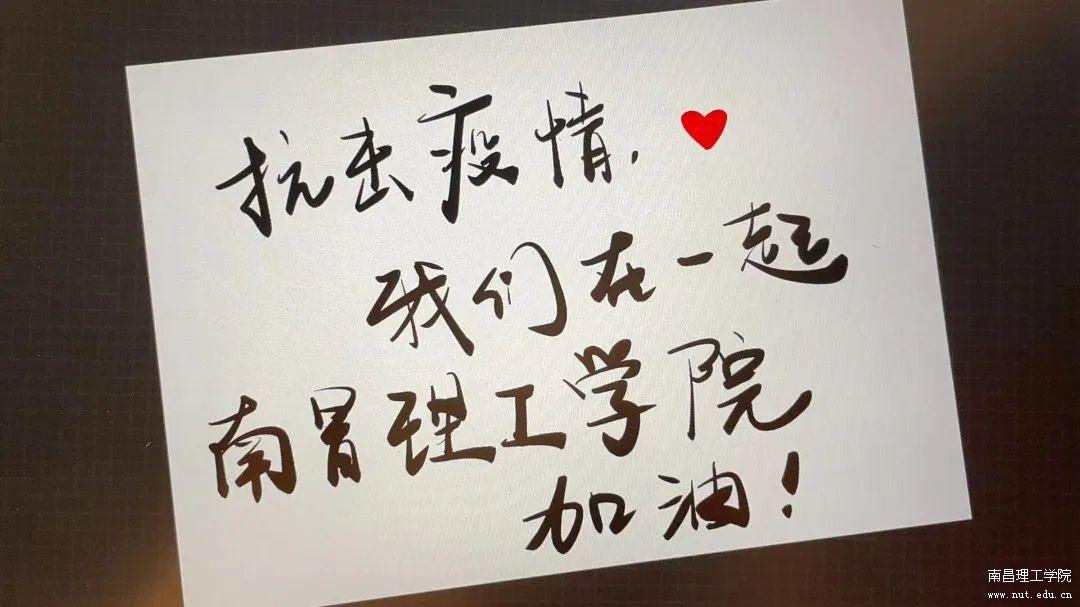 抗击疫情,
我们在一起
南昌理工学院
加油!
南昌理工学院
www.nut.edu.cn